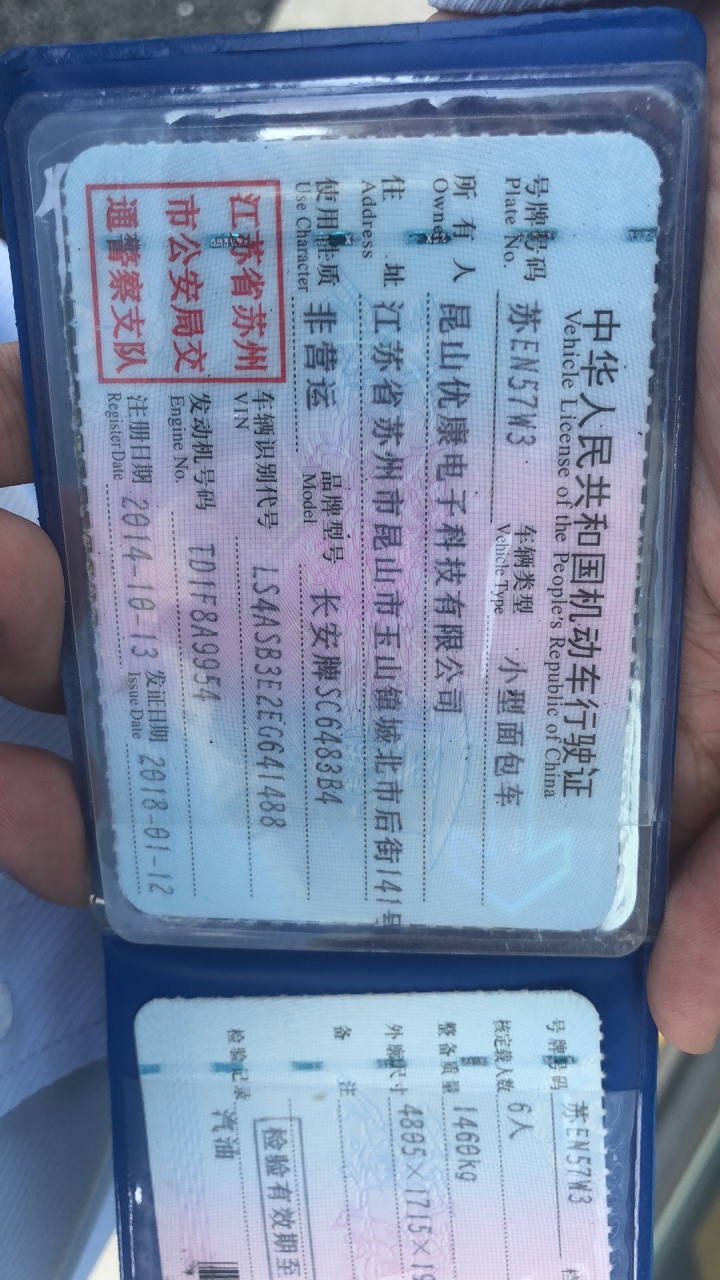 中华人民共和国机动车行驶证
Vehicle License of the People's Republic of China
号牌号码 苏EN57W3 车辆类型 小型面包车
Plate No. Vehicle Type
所有人 昆山优康电子科技有限公司
Owner
住址 江苏省苏州市昆山市玉山镇城北市后街141号
Address
使用性质 非营运 品牌型号 长安牌SC6483B4
Use Character Model
江苏省苏州
市公安局交
通警察支队
车辆识别代号 LS4ASB3E2EG641488
VIN
发动机号码 TD1F8A9954
Engine No.
注册日期 2014-10-13 发证日期 2018-01-12
Register Date Issue Date
号牌号码 苏EN57W3
核定载人数 6人
整备质量 1460kg
外廓尺寸 4805×1715×19
备注
检验有效期至
检验记录 汽油